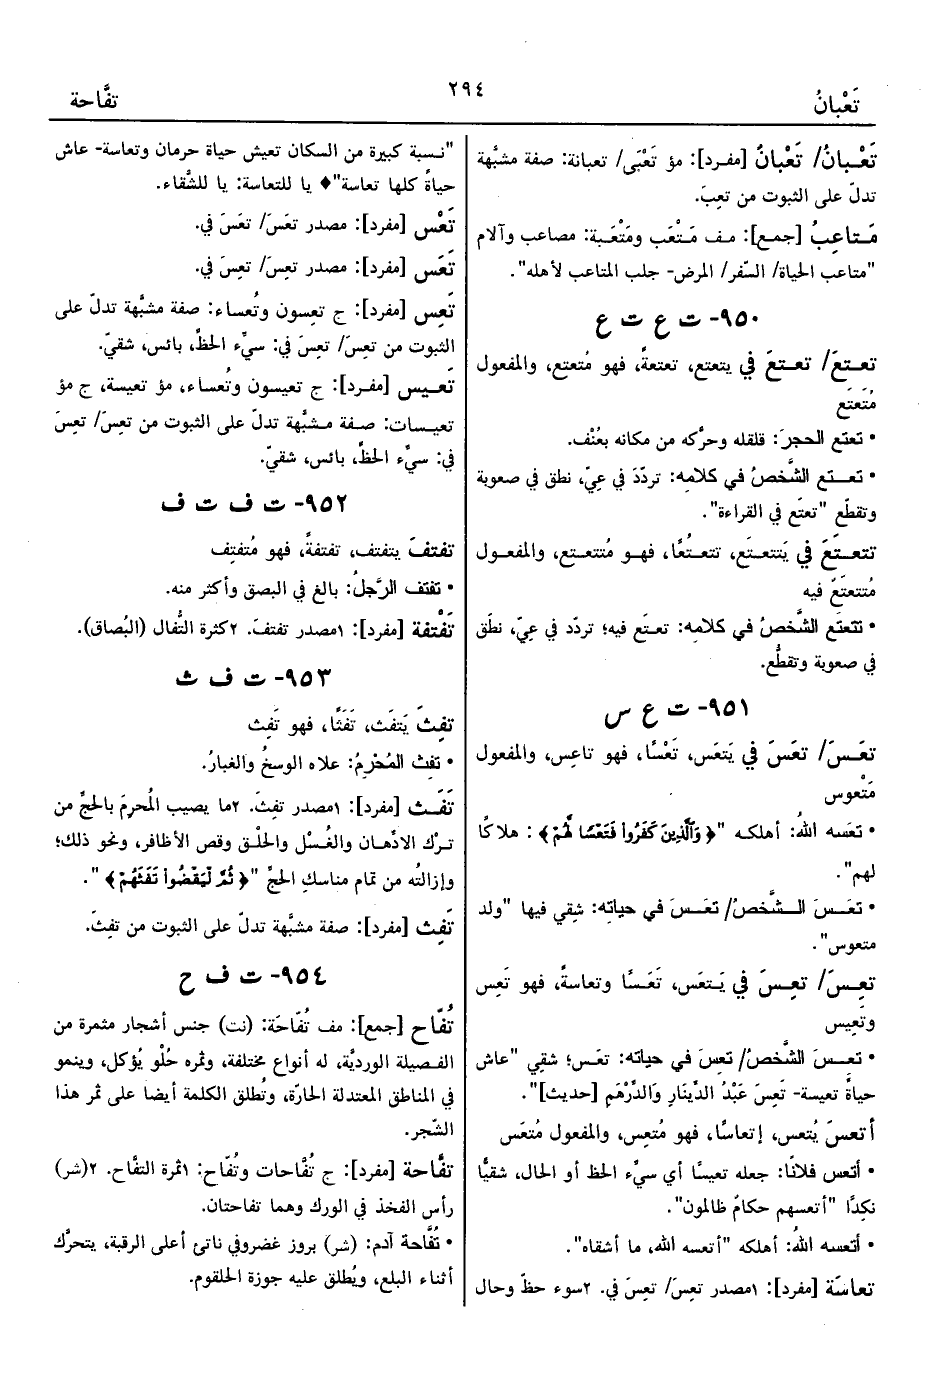 تَعْبانُ
٢٩٤
تفَّاحة
تَعْبانُ/ تَعْبانٌ [مفرد]: مؤ تَعْبَى/ تعبانة: صفة مشبَّهة
تدلّ على الثبوت من تعِبَ.
مَتاعِبُ [جمع]: مف مَتْعَب ومَتْعَبة: مصاعب وآلام
"متاعب الحياة/ السَّفر/ المرض- جلب المتاعب لأهله".
٩٥٠- ت ع ت ع
تعتعَ/ تعتعَ في يتعتع، تعتعةً، فهو مُتعتِع، والمفعول
مُتَعتَع
• تعتع الحجرَ: قلقله وحرَّكه من مكانه بعُنْف.
• تعتع الشَّخصُ في كلامِه: تردّدَ في عِيّ، نطق في صعوبة
وتقطّع "تعتَع في القراءة".
تتعتَعَ في يَتتعتَع، تتعتُعًا، فهو مُتتعتِع، والمفعول
مُتتعتَعٌ فيه
• تتعتَع الشَّخصُ في كلامِه: تعتَع فيه؛ تردّد في عِيّ، نطَق
في صعوبة وتقطُّع.
٩٥١- ت ع س
تعَسَ/ تعَسَ في يَتعَس، تَعْسًا، فهو تاعِس، والمفعول
مَتْعوس
• تعَسه اللهُ: أهلكه "﴿وَالَّذِينَ كَفَرُوا فَتَعْسًا لَهُمْ﴾: هلاكًا
لهم".
• تعَسَ الشَّخصُ/ تعَسَ في حياتِه: شِقِي فيها "ولد
متعوس".
تعِسَ/ تعِسَ في يَتعَس، تَعَسًا وتعاسةً، فهو تَعِس
وتَعِيس
• تعِسَ الشَّخصُ/ تعِسَ في حياتِه: تعَس؛ شقِي "عاش
حياةً تعيسة- تَعِسَ عَبْدُ الدِّينَارِ وَالدِّرْهَمِ [حديث]".
أتعسَ يُتعس، إتعاسًا، فهو مُتعِس، والمفعول مُتعَس
• أتعس فلانًا: جعله تعيسًا أي سيِّء الحظ أو الحال، شقيًّا
نكِدًا "أتعسهم حكامٌ ظالمون".
• أتعسه اللهُ: أهلكه "أتعسه الله، ما أشقاه".
تعاسَة [مفرد]: ١مصدر تعِسَ/ تعِسَ في. ٢سوء حظّ وحال
"نسبة كبيرة من السكان تعيش حياة حرمان وتعاسة- عاش
حياةً كلها تعاسة"♦ يا للتعاسة: يا للشَّقاء.
تَعْس [مفرد]: مصدر تعَسَ/ تعَسَ في.
تَعَس [مفرد]: مصدر تعِسَ/ تعِسَ في.
تَعِس [مفرد]: ج تعِسون وتُعساء: صفة مشبَّهة تدلّ على
الثبوت من تعِسَ/ تعِسَ في: سيِّء الحظّ، بائس، شقيّ.
تَعيس [مفرد]: ج تعيسون وتُعساء، مؤ تعيسة، ج مؤ
تعيسات: صفة مشبَّهة تدلّ على الثبوت من تعِسَ/ تعِسَ
في: سيِّء الحظّ، بائس، شقيّ.
٩٥٢- ت ف ت ف
تفتفَ يتفتف، تفتفةً، فهو مُتفتِف
• تفتف الرَّجلُ: بالغ في البصق وأكثر منه.
تَفْتفة [مفرد]: ١مصدر تفتفَ. ٢كثرة التُّفال (البُصاق).
٩٥٣- ت ف ث
تفِثَ يَتفَث، تَفَثًا، فهو تَفِث
• تفِث المُحْرِمُ: علاه الوسخُ والغبارُ.
تَفَث [مفرد]: ١مصدر تفِثَ. ٢ما يصيب المُحرِمَ بالحجّ من
ترْك الادِّهان والغُسْل والحلْق وقص الأظافر، ونحو ذلك؛
وإزالتُه من تمام مناسكِ الحجّ "﴿ثُمَّ لْيَقْضُوا تَفَثَهُمْ﴾".
تَفِث [مفرد]: صفة مشبَّهة تدلّ على الثبوت من تفِثَ.
٩٥٤- ت ف ح
تُفَّاح [جمع]: مف تُفّاحَة: (نت) جنس أشجار مثمرة من
الفصيلة الورديَّة، له أنواع مختلفة، وثمره حُلْو يُؤكل، وينمو
في المناطق المعتدلة الحارّة، وتُطلق الكلمة أيضا على ثمر هذا
الشّجر.
تفَّاحة [مفرد]: ج تُفَّاحات وتُفّاح: ١ثمرة التفَّاح. ٢(شر)
رأس الفخذ في الورك وهما تفاحتان.
• تُفَّاحة آدم: (شر) بروز غضروفي ناتئ أعلى الرقبة، يتحرَّك
أثناء البلع، ويُطلق عليه جوزة الحلقوم.